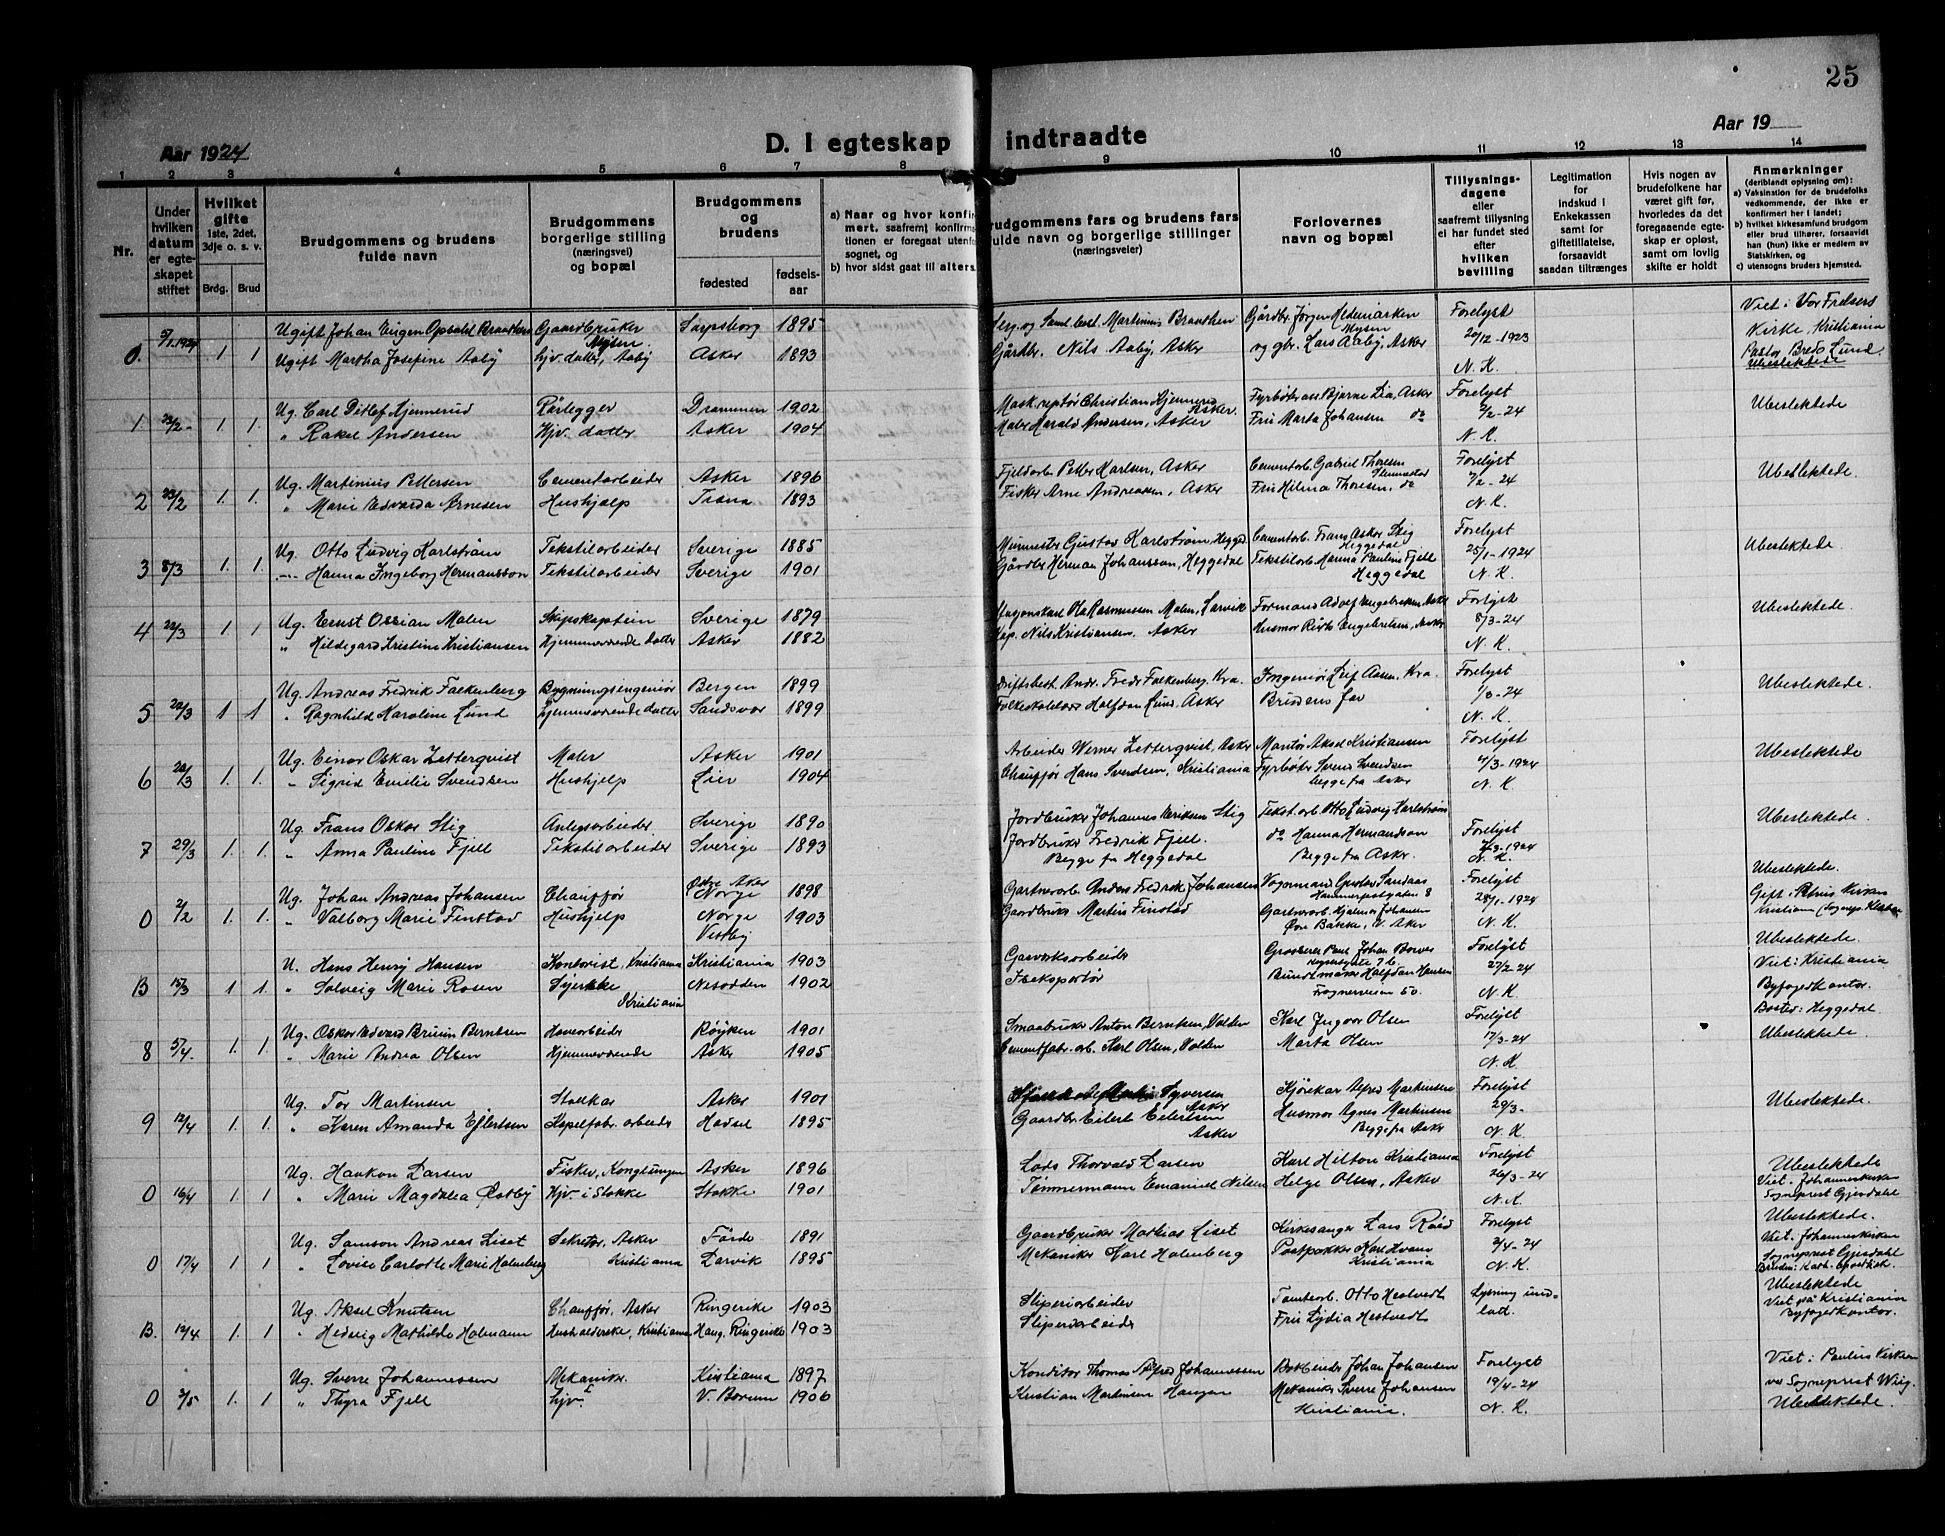 25
Aar 1924
D. I egteskap indtraadte
Aar 19
1 2 3 4 5 6 7 8 9 10 11 12 13 14
Nr.
Under hvilken datum er egteskapet stiftet
Hvilket gifte 1ste, 2det, 3dje o. s. v.
Brdg. Brud
Brudgommens og brudens fulde navn
Brudgommens borgerlige stilling (næringsvei) og bopæl
Brudgommens og brudens
fødested
fødselsaar
a) Naar og hvor konfirmert, saafremt konfirmationen er foregaat utenfor sognet, og
b) hvor sidst gaat til alters.
Brudgommens fars og brudens fars fulde navn og borgerlige stillinger (næringsveier)
Forlovernes navn og bopæl
Tillysningsdagene eller saafremt tillysning ei har fundet sted efter hvilken bevilling
Legitimation for indskud i Enkekassen samt for giftetillatelse, forsaavidt saadan tiltrænges
Hvis nogen av brudefolkene har været gift før, hvorledes da det foregaaende egteskap er opløst, samt om lovlig skifte er holdt
Anmerkninger (deriblandt oplysning om):
a) Vaksination for de brudefolks vedkommende, der ikke er konfirmert her i landet;
b) hvilket kirkesamfund brudgom eller brud tilhører, forsaavidt han (hun) ikke er medlem av Statskirken, og
c) utensogns bruders hjemsted.
0. 5/1.1924 1 1 Ugift Johan Eugen Opsahl Braathen Gaardbruker Mysen. Sarpsborg 1895 Serg. og Saml. best. Martinius Braathen Gårdbr. Jørgen Hedemarken Mysen Forelyst Viet i Vor Frelsers
Ugift Martha Josefine Aaby Hjv. datter, Aaby Asker 1893 Gårdbr. Nils Aaby, Asker og gbr. Lars Aaby, Asker 20/12-1923 N. K. Kirke, Kristiania Pastor Bredo Lund. Ubeslektede
1 1 1. Ug. Carl Ditlef Hjennerud Rørlegger Drammen 1902 Mask. reptør Christian Hjennerud Asker. Fyrbøter Bjarne Lia, Asker Forelyst Ubeslektede
" Rakel Andersen Hjv. datter Asker 1904 Maler Harald Andersen, Asker Fru Marta Johansen do 2/2-24 N. K.
2 23/2 1. 1. Ug. Martinius Pettersen Cementarbeider Asker 1896 Fjeldarb. Petter Karlsen, Asker Cementarb. Gabriel Thoresen Forelyst Ubeslektede
" Marie Edvarda Arnesen Hushjælp Træna 1893 Fisker Arne Andreasen, Asker Fru Helma Thoresen, do 7/2-24 N. K.
3 8/3 1. 1. Ug. Otto Ludvig Karlstrøm Tekstilarbeider Sverige 1885 Murmester Gustav Karlstrøm, Hegged. Cementarb. Frans Oskar Stig Heggedal Forelyst Ubeslektede.
Hanna Ingeborg Hermansson Tekstilarbeider Sverige 1901 Gårdbr. Herman Johansson, Heggedal Tekstilarb. Hanna Pauline Fjell Heggedal 25/1-1924 N. K.
4 22/3 1 1 Ug. Ernst Ossian Malen Skipskaptein Sverige 1879 Ola Rasmussen Malen, Larvik Formand Adolf Engebretsen, Asker Forlyst Ubeslektede.
" Hildegard Kristine Kristiansen Hjemmeværende datter Asker 1882 Kap. Nils Kristiansen, Asker Husmor Engebretsen, Asker 8/3-24 N. K.
5 22/3 1 1 Ug. Andreas Fredrik Falkenberg Bygningsingeniør Bergen 1899 Driftsbest. Andr. Fredr Falkenberg, Kra. Ingeniør Leif Aasen, Kra. Forelyst Ubeslektede.
" Ragnhild Karoline Lund Hjemmeværende datter Sandsvær 1899 Folkeskolelærer Halfdan Lund, Asker Brudens far 1/3-24 N. K.
6 22/3 1. 1. Ug. Einar Oskar Zetterqvist Maler Asker 1901 Arbeider Werner Zetterqvist, Asker Montør Aksel Kristiansen Forelyst Ubeslektede
" Sigrid Emilie Svendsen Hushjelp Lier 1904 Chauffør Hans Svendsen, Kristiania Fyrbøter Svend Svendsen begge fra Asker 4/3-1924 N. K.
7 29/3 1. 1. Ug. Frans Oskar Stig Anlegsarbeider Sverige 1890 Jordbruker Johannes Eriksen Stig Tekst. arb. Otto Ludvig Karlstrøm Forelyst Ubeslektede.
" Anna Pauline Fjell Tekstilarbeider Sverige 1893 Jordbruker Fredrik Fjell Begge fra Heggedal do Hanna Hermandson Begge fra Asker. 3-1924 N. K.
0 2/2 1. 1. Ug. Johan Andreas Johansen Chauffør Østre Aker Norge 1898 Gartnerarb. Anders Fredrik Johansen Vognmand Gustav Sandaas Hammerstadgaten 8 Forelyst Ubeslektede. Gift: Petrus Kirken
" Valborg Marie Finstad Hushjelp Norge Vestby 1903 Gaardbruker Martin Finstad Gartnerarb. Hjalmar Johansen Øvre Bakke, V. Aker 28/1-1924 N. K. Kristiania
B 15/3 1 1. U. Hans Henry Hansen Kontorist, Kristiania Kristiania 1903 Gasverksarbeider Grosserer Paul Johan Borves 76. Forelyst Ubeslektede. Viet: Kristiania
" Solveig Marie Rosen Syerske Kristiania Nesodden 1902 Isekspørtør Bundtmaker Halfdan Hansen Frognerveien 50. 27/2-24 N. K. Byfogedkontor. Bosted: Heggedal
8 5/4. 1. 1. Ug. Oskar Edvard Bruun Berntsen Havearbeider Røyken 1901 Smaabruker Anton Berntsen, Valden Karl Ingvar Olsen Forelyst Ubeslektede
" Marie Andrea Olsen Hjemmeværende Asker 1905 Cementfabr. arb. Karl Olsen, Valden Marta Olsen 17/3-24 N. K.
9 12/4 1. 1. Ug. Tor Martinsen Stallkar Asker 1901 Syversen Asker Kjørekar Alfred Martinsen Forelyst Ubeslektede.
" Karen Amanda Ejlertsen Kapelfabr. arbeider Hadsel 1895 Gaardbr. Eilert Eilertsen Asker Husmor Agnes Martinsen Begge fra Asker 29/3- N. K.
0 16/4 1 1 Ug. Haakon Larsen Fisker, Konglungen Asker 1896 Lods Thorvald Larsen Karl Hilton Kristiania Forelyst Ubeslektede
" Marie Magdalea Østby Hjv. i Stokke Stokke 1901 Tømmermann Emanuel Nilsen Helge Olsen, Asker 26/3-24 N. K. Viet: Johanneskirken Sogneprest Gjesdahl
0 17/4 1 1 Ug. Samson Andreas Liset Sekretær, Asker Førde 1891 Gaardbruker Mathias Liset Kirkesanger Lars Røed Forelyst Ubeslektede. Viet: Johanneskirken
" Lovise Carlotte Marie Holmberg Kristiania Larvik 1895 Mekaniker Karl Holmberg Postpakker Karl Hvam Kristiania 2/4-24 N. K. Sogneprest Gjesdahl Bruden: Kath. Apostolsk.
B. 12/4 1. 1 Ug. Aksel Knutsen Chauffør, Asker Ringerike 1903 Sliperiarbeider Tomtearb. Otto Hestvedt Lysning undlatt. Ubeslektede Viet på Kristiania
" Hedvig Mathilde Hofmann Husholderske, Kristiania Haug, Ringerike 1903 Sliperiarbeider Fru Lydia Hestvedt Byfogedkontor.
0 3/5 1. 1 Ug. Sverre Johannessen Mekaniker Kristiania 1897 Konditor Thomas Alfred Johannessen Bokbinder Johan Johansen Forelyst Viet i Paulus Kirken
" Thyra Fjell Hjv. V. Bærum 1906 Kristian Martinsen Haugen Mekaniker Sverre Johansen Kristiania. 19/4-24 N. K. ved Sogneprest Wiig. Ubeslektede.